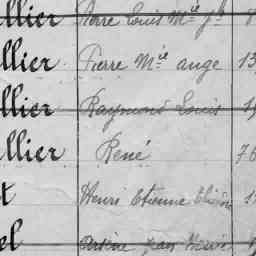 llier Pierre Louis Mie Jh 8
llier Pierre Mie ange 13
llier Raymond Louis 19
llier René 76
t Henri Etienne 1
el Arsène Jean